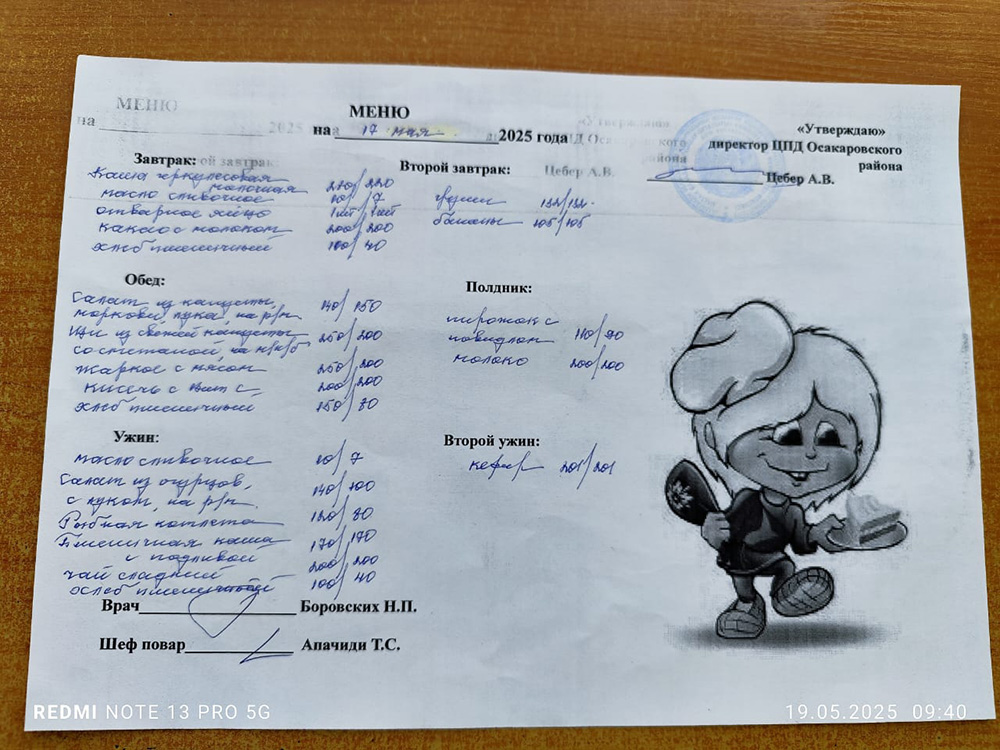 МЕНЮ
МЕНЮ
на
2025
на 17 мая 2025 года
«Утверждаю»
«Утверждаю»
директор ЦПД Осакаровского
района
Цебер А.В.
Цебер А.В.
Завтрак:
ой завтрак:
Каша геркулесовая
молочная 270/220
масло сливочное 10/7
отварное яйцо 1шт/1шт
какао с молоком 200/200
хлеб пшеничный 100/40
Второй завтрак:
груши 132/132
бананы 105/105
Обед:
Салат из капусты,
моркови лука, на р/м 140/150
Щи из свежей капусты
со сметаной, на м/к/б 250/200
Жаркое с мясом 250/200
кисель с вит С 200/200
хлеб пшеничный 150/80
Полдник:
пирожок с
повидлом 110/90
молоко 200/200
Ужин:
масло сливочное 10/7
Салат из огурцов,
с луком, на р/м 140/100
Рыбная котлета 120/80
Пшеничная каша 170/170
с подливой
чай сладкий 200/200
хлеб пшеничный 100/40
Второй ужин:
кефир 201/201
Врач Боровских Н.П.
Шеф повар Апачиди Т.С.
REDMI NOTE 13 PRO 5G
19.05.2025 09:40